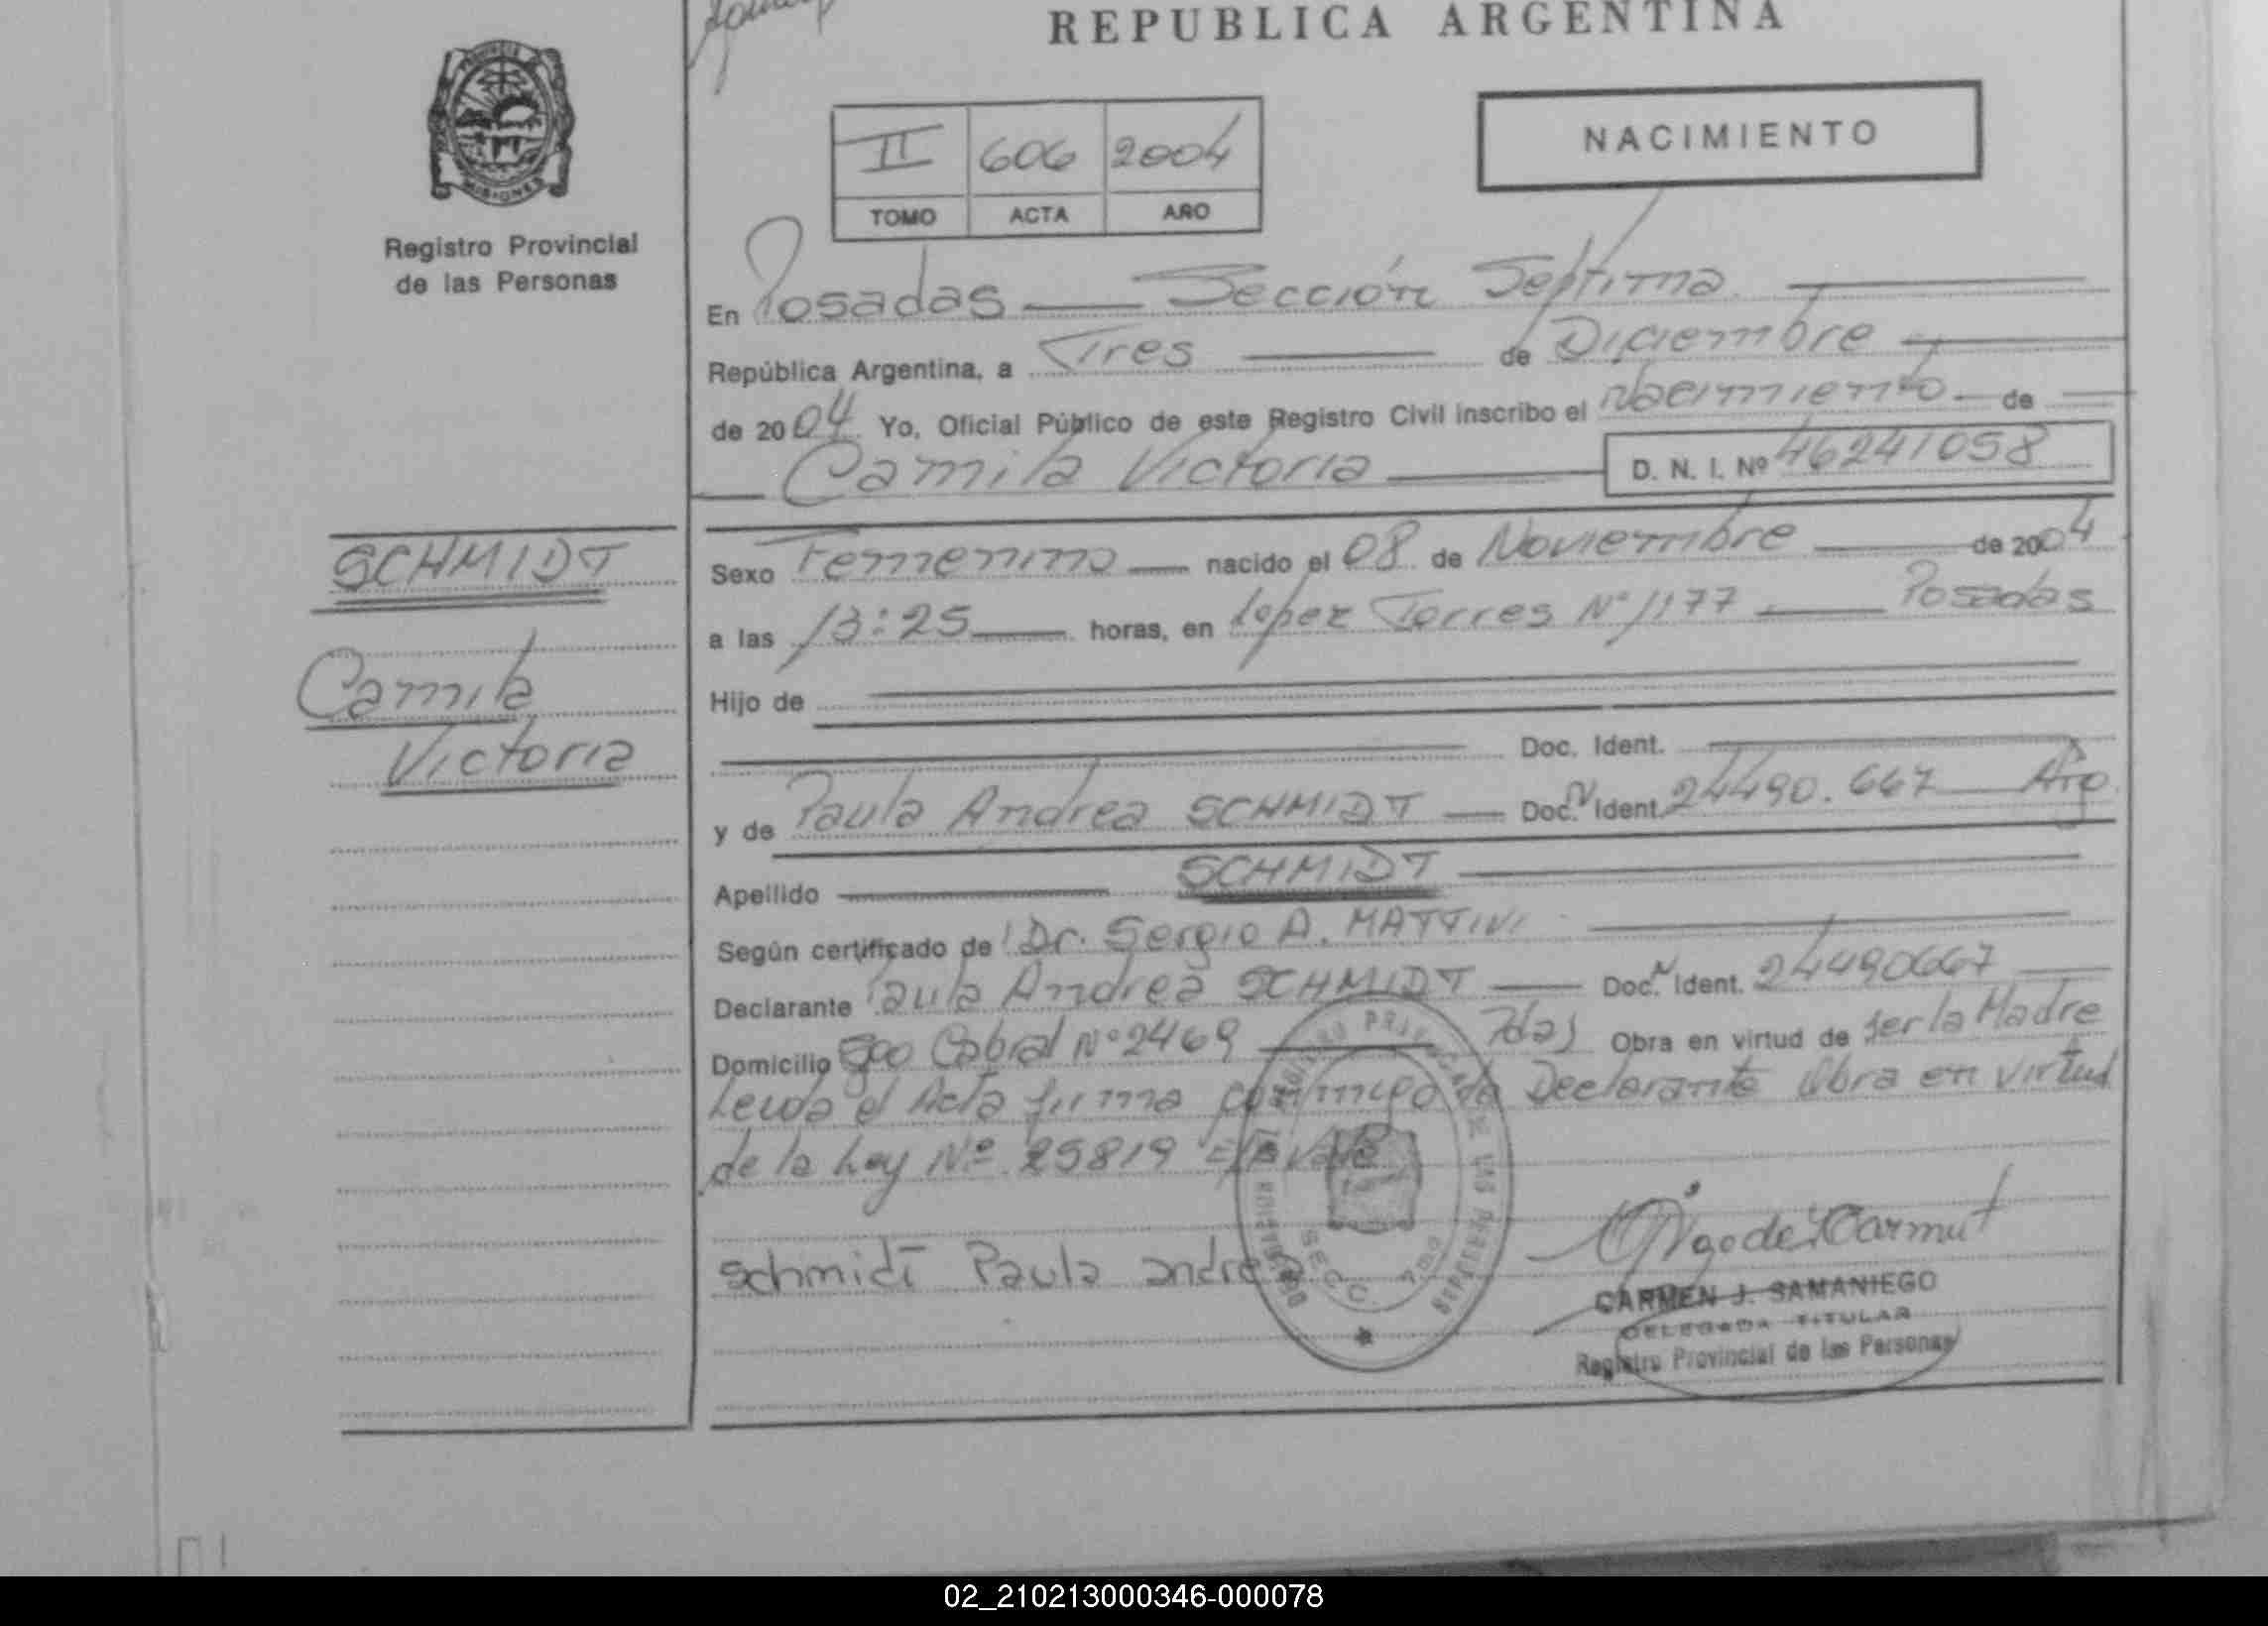 REPUBLICA ARGENTINA
PROVINCIA DE
MISIONES
Registro Provincial
de las Personas
NACIMIENTO
II 606 2004
TOMO ACTA AÑO
En Posadas Sección Septima
República Argentina, a Tres de Diciembre
de 2004 Yo, Oficial Público de este Registro Civil inscribo el nacimiento de
Camila Victoria D. N. I. Nº 46241058
SCHMIDT
Camila
Victoria
Sexo Femenino nacido el 08 de Noviembre de 2004
a las 13:25 horas, en Lopez Torres Nº 1177 Posadas
Hijo de
Doc. Ident.
y de Paula Andrea SCHMIDT Doc. N Ident. 24490.667 Arg
Apellido SCHMIDT
Según certificado de Dr. Sergio A. MATTIVI
Declarante Paula Andrea SCHMIDT Doc. N Ident. 24490667
Domicilio Sgo Cabral Nº 2469 Pdas Obra en virtud de ser la Madre
Leida el Acta firma conmigo la Declarante Obra en virtud
de la Ley Nº 25819 Vale
Schmidt Paula andrea
REGISTRO PROVINCIAL DE LAS PERSONAS
SECC. 7ma
CARMEN J. SAMANIEGO
DELEGADA TITULAR
Registro Provincial de las Personas
02_210213000346-000078